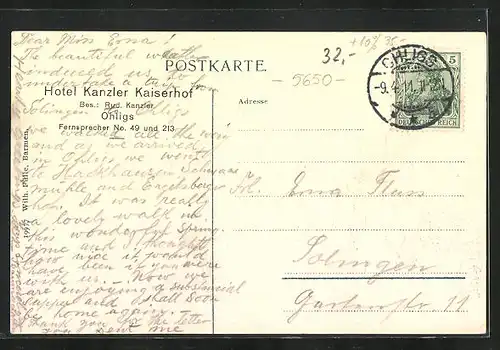 Dear Miss Erna!
The beautiful weath-
er induced us to
undertake a trip from
Hotel Kanzler Kaiserhof
Bes.: Rud. Kanzler
Ohligs
Fernsprecher No. 49 und 213
Solingen to Ohligs
we walked all the way
and as we arrived
in Ohligs we went
to Hackhausen Schwanen
mühle and Engelsberger
hof. It was really
a lovely walk in
this wonderful spring
time and I thought
how nice it would
have been if you were
with us. Now we
are enjoying a substancial
supper and shall soon
be home again.
Thank you for the letter
you sent me
19917 Wilh. Fülle, Barmen.
POSTKARTE.
Adresse
32,-
+10% 35,-
5650-
OHLIGS
-9.4.11.
5
DEUTSCHES REICH
Frl. Erna Fluss
Solingen
Gartenstr 11